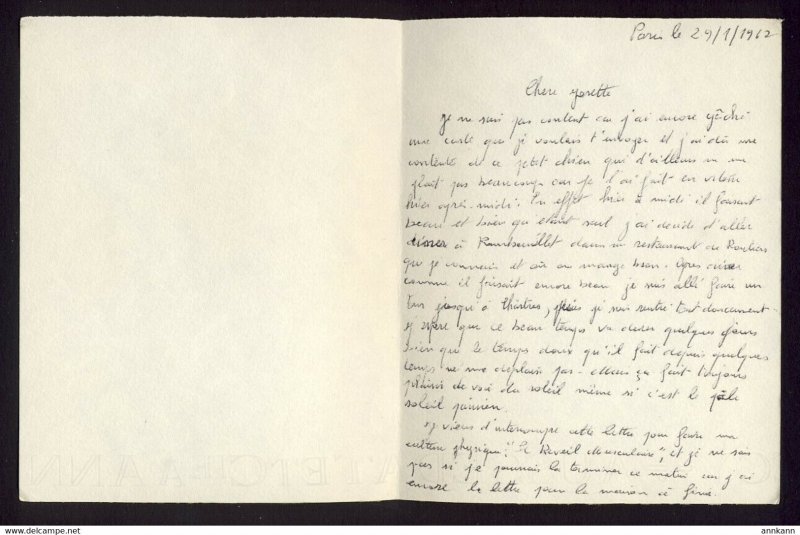 Paris le 29/1/1962
Chere Yorette
Je ne suis pas content car j'ai encore gâché
une carte que je voulais t'envoyer et j'ai dû me
contenté de ce petit chien qui d'ailleurs ne me
plait pas beaucoup car je l'ai fait en vitesse
hier après-midi. En effet hier à midi il faisait
beau et bien que etant seul j'ai decidé d'aller
diner à Rambouillet dans un restaurant de Routiers
que je connais et où on mange bien. Apres diner
comme il faisait encore beau je suis allé faire un
tour jusqu'à Chartres, puis je suis rentré tout doucement.
J'espere que ce beau temps va durer quelques jours
bien que le temps doux qu'il fait depuis quelques
temps ne me deplait pas. Mais ça fait toujours
plaisir de voir du soleil même si c'est le pâle
soleil
Je viens d'interrompre cette lettre pour faire ma
culture physique, "le Reveil Musculaire", et je ne sais
pas si je pourrais la terminer ce matin car j'ai
encore la lettre pour la maison à finir.
ann
http://www.delcampe.net
annkann